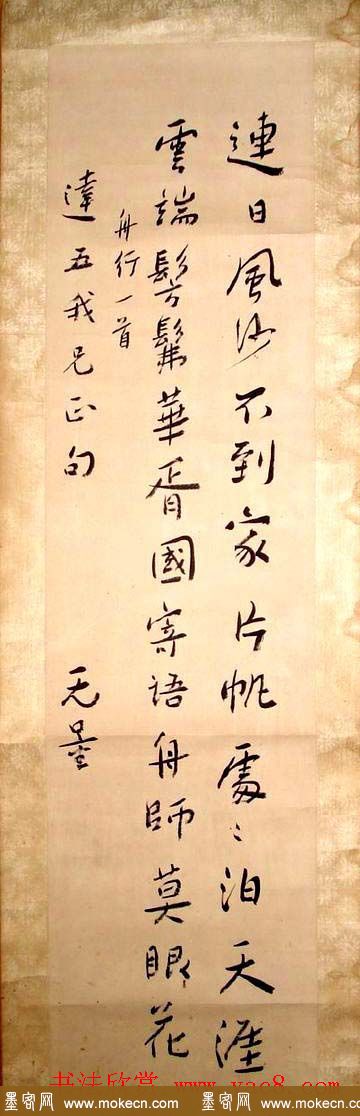 連日風沙不到家片帆處〻泊天涯
雲端髣髴華胥國寄語舟師莫眼花
舟行一首
達五我兄正句
无量
书法欣赏 www.yac8.com
墨客网 www.mokecn.com 墨客网 www.mokecn.com